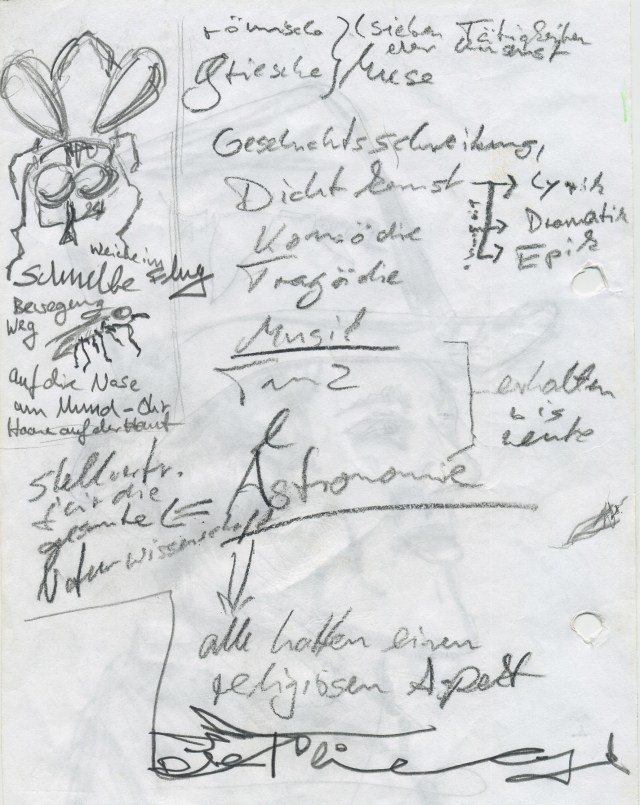 römische } (sieben Tätigkeiten
der Kunst
Griesche } Muse
Geschichtsschreibung,
Dichtkunst → Lyrik
→ Dramatik
→ Epik
Komödie
Tragödie
Musik
Tanz
erhalten
bis
heute
Astronomie
Stellvertr.
für die
gesamte
Naturwissenschaft
alle hatten einen
religiösen Aspekt
Schnelle
Bewegung
weg
auf die Nase
am Mund - Ohr
Haare auf der Haut
Die Fliege